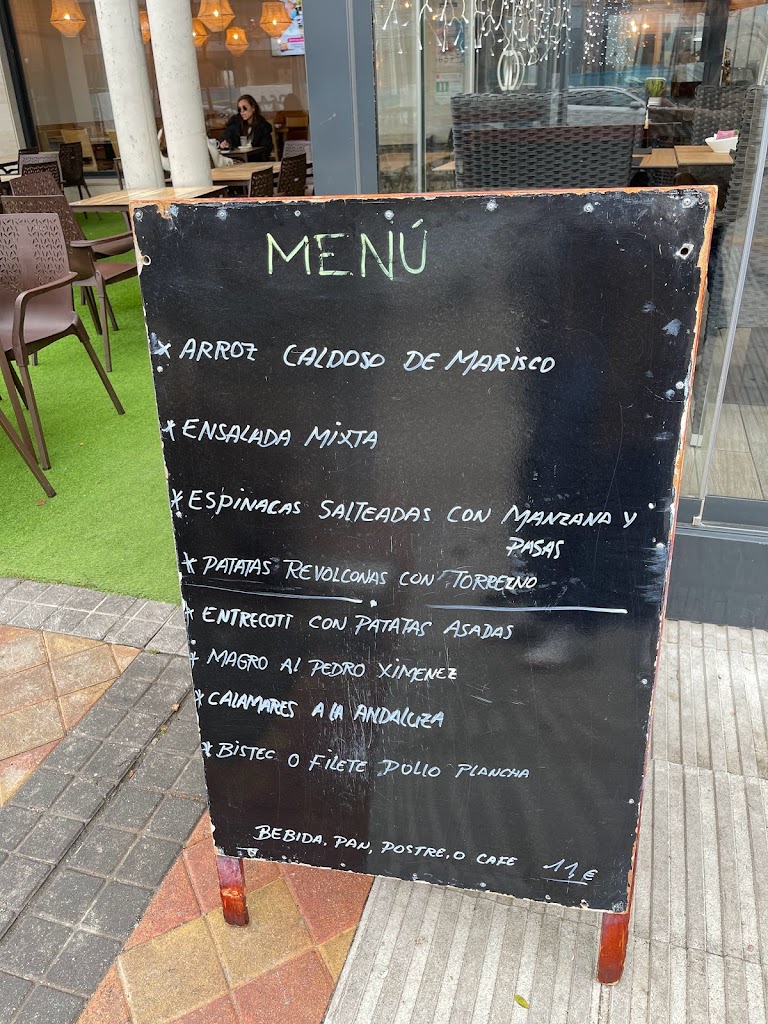 MENÚ
* ARROZ CALDOSO DE MARISCO
* ENSALADA MIXTA
* ESPINACAS SALTEADAS CON MANZANA Y
PASAS
* PATATAS REVOLCONAS CON TORREZNO
* ENTRECOTT CON PATATAS ASADAS
* MAGRO Al PEDRO XIMENEZ
* CALAMARES A lA ANDALUZA
* BISTEC O FILETE POLLO PLANCHA
BEBIDA, PAN, POSTRE, O CAFE 11,€